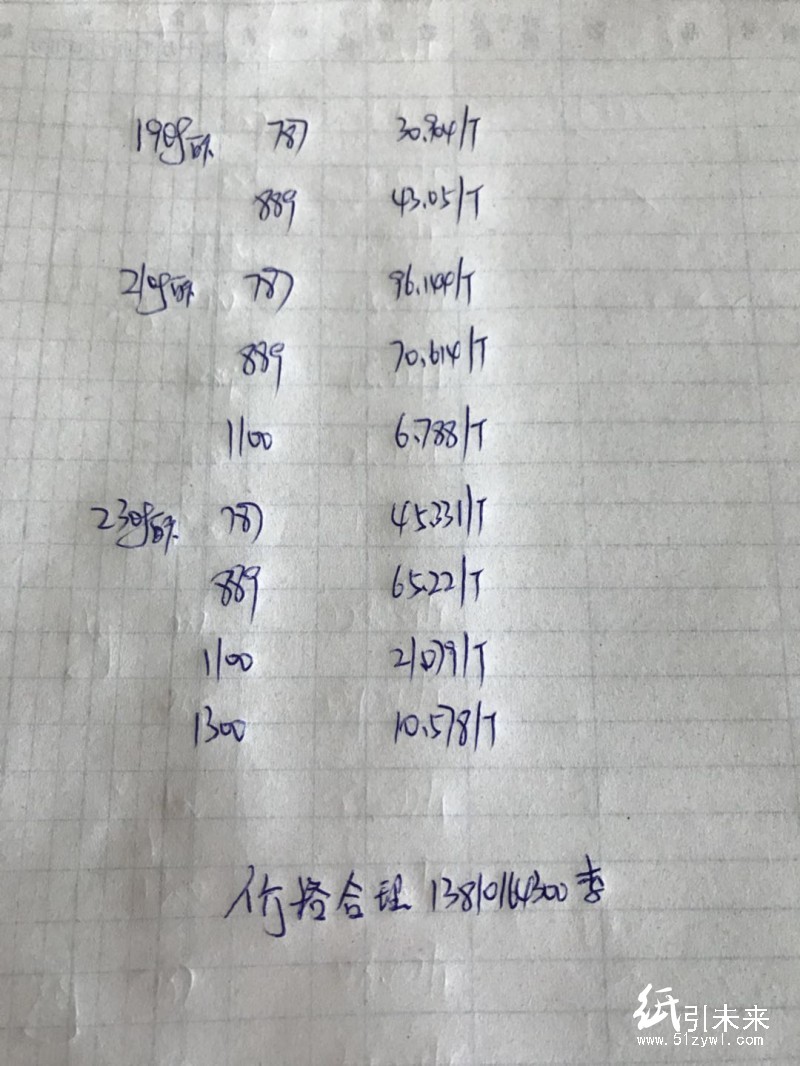 190g 787 30.904/T
889 43.05/T
210g 787 96.144/T
889 70.614/T
1100 6.788/T
230g 787 45.331/T
889 65.22/T
1100 21.079/T
1300 10.578/T
价格合理 13810164300 李
纸引未来
www.51zywl.com